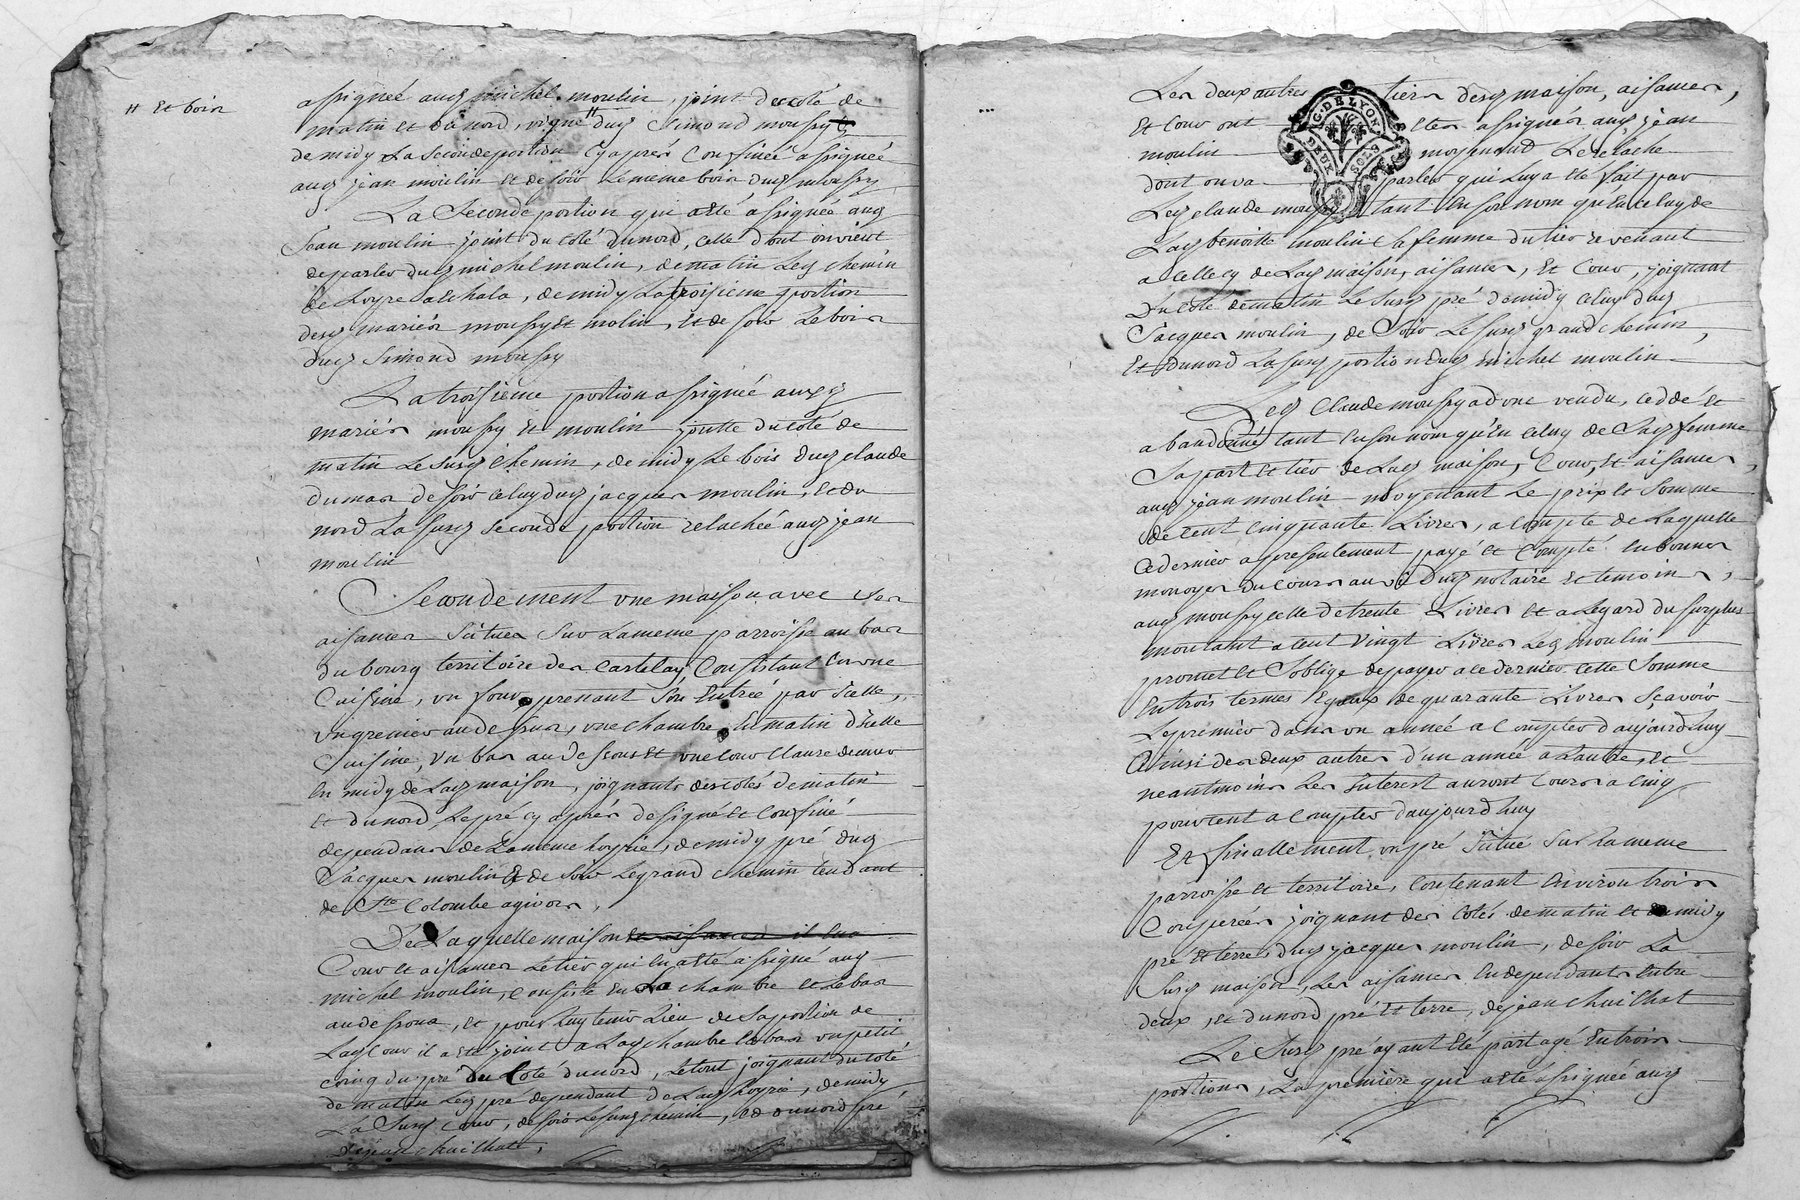 # Et bois
assignée aud michel moulin, joint du côté de
matin et du nord, vigne # dud Simond moussy
de midy La seconde portion cy après Confinée assignée
aud jean moulin et de soir Le meme bois dud moussy
La Seconde portion qui a eté assignée aud
Jean moulin joint du côté du nord, celle dont on vient
de parler dud michel moulin, de matin Led chemin
de Loyre a echala, de midy La troisieme portion
desd mariés moussy et molin, et de soir Le bois
dud Simond moussy
La troisieme portion assignée auxd
mariés moussy et moulin joutte du côté de
matin Le susd chemin, de midy Le bois dud claude
dumas de soir celuy dud jacques moulin, et du
nord La susd seconde portion relachée aud jean
moulin
Secondement une maison avec ses
aisances situes sur La meme parroisse au bas
du bourg territoire des Castelas, Consistant en une
Cuisine, un four prenant son entrée par icelle,
un grenier au dessus, une chambre au matin d'icelle
Cuisine, un bas au dessous et une Cour Clause de murs
en midy de Lad maison, joignants des cotés de matin
et du nord Le pré cy après designé et Confiné
dependans de La meme hoyrie, de midy pré dud
Jacques moulin et de soir Le grand chemin tendant
de Ste Colombe a givors,
De Laquelle maison et aisances il en a
Cour et aisances Le tier qui en a eté assigné aud
michel moulin, Consiste en La chambre et Le bas
au dessous, et pour Luy tenir Lieu de sa portion de
Lad Cour il a eté joint a Lad chambre et bas un petit
coing du pré du Coté du nord, Le tout joignant du coté
de matin Led pré dependant de Lad hoyrie, de midy
La Susd Cour, de soir Le susd chemin, et du nord pré
de jean chuilhat,
Les deux autres tiers desd maison, aisances,
Et Cour ont etés assignés aud jean
moulin moyenant Le relache
dont on va parler qui Luy a eté fait par
Led claude moussy tant en son nom qu'en celuy de
Lad benoitte moulin sa femme du tier revenant
a celle cy de Lad maison, aisances, Et Cour, joignant
Du coté de matin Le Susd pré de midy celuy dud
Jacques moulin, de Soir Le Susd grand chemin,
Et du nord La susd portion dud michel moulin
Led Claude moussy a donc vendu, ceddé et
abandonné tant en son nom qu'en celuy de Lad femme
Sa part et tier de Lad maison, Cour, et aisances,
aud jean moulin moyenant Le prix et Somme
de Cent Cinquante Livres, a Compte de Laquelle
ce dernier a presentement payé et Compté en bonnes
monoyes du Cours au vû dud notaire et temoins,
aud moussy celle de trente Livres et a Legard du surplus
montant a Cent Vingt Livres Led moulin
promet et S'oblige de payer a ce dernier cette Somme
en trois termes Egaux de quarante Livres Sçavoir
Le premier dans un année a Compter d'aujourd'huy
Ainsi des deux autres d'un année a L'autre, et
neantmoins Les interest auront Cours a cinq
pour Cent a Compter d'aujourd'huy
Et finallement un pré situé sur La meme
parroisse et territoire, Contenant Environ trois
Couperées joignant des Cotés de matin et de midy
pré et terres dud jacques moulin, de soir La
Susd maison, Les aisances En dependants Entre
deux, et du nord pré Et terre, de jean chuilhat
Le Susd pré ayant Eté partagé En trois
portions, La première qui a eté assignée aud
G. DE LYON
DEUX SOLS